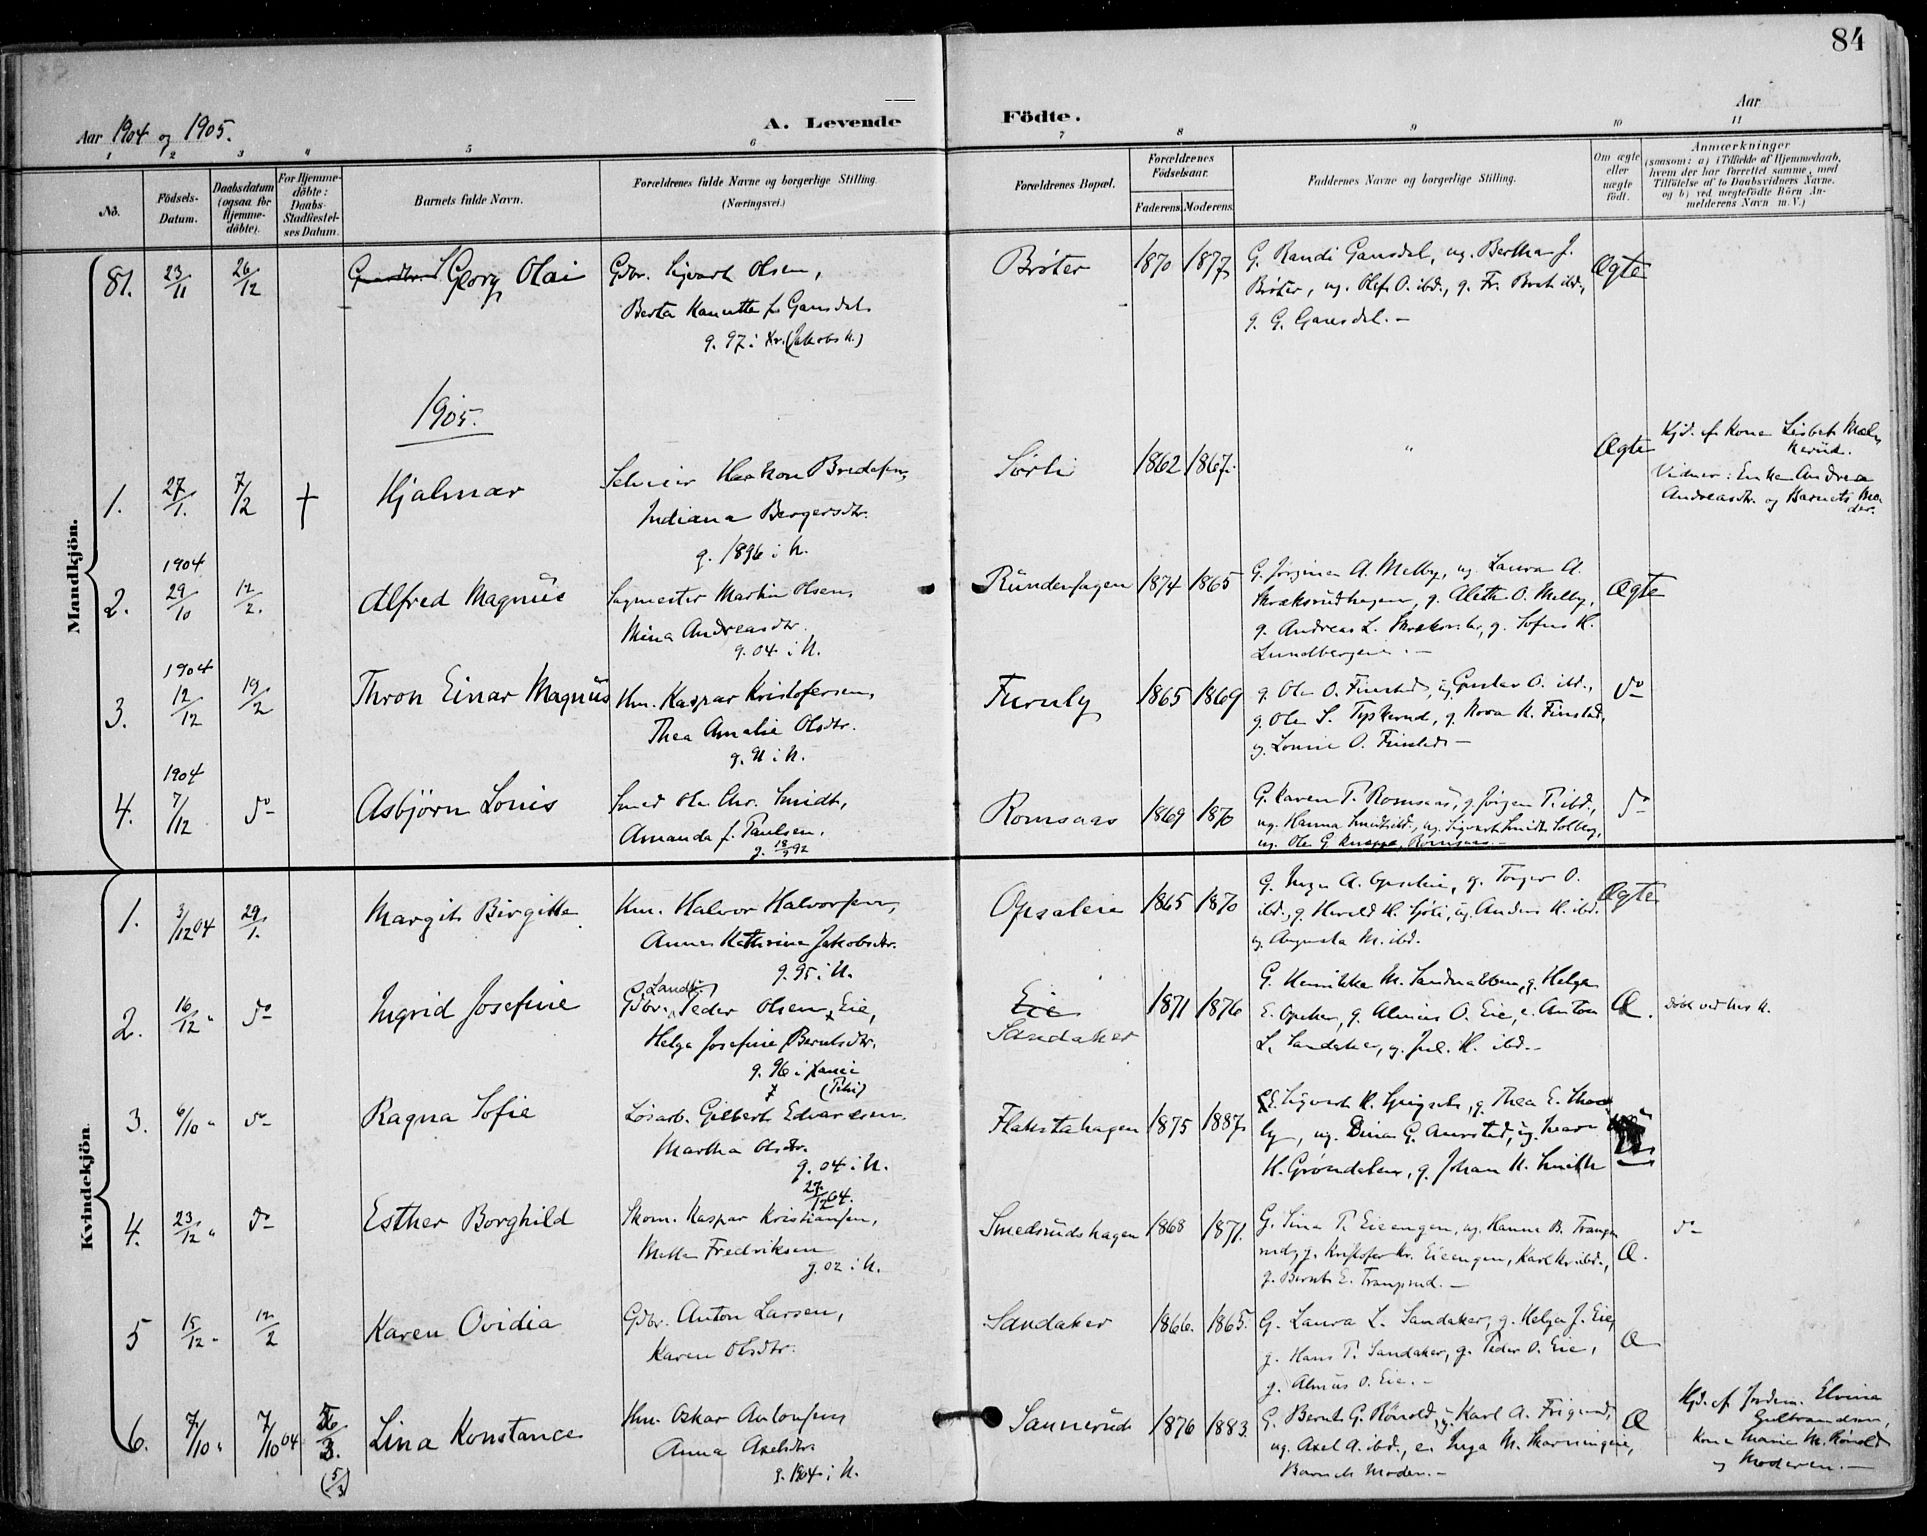 84
Aar 1904 og 1905.
A. Levende
Födte.
Aar
1 2 3 4 5 6 7 8 9 10 11
No.
Födsels-
Datum.
Daabsdatum
(ogsaa for
Hjemme-
döbte).
For Hjemme-
döbte:
Daabs-
Stadfæstel-
ses Datum.
Barnets fulde Navn.
Forældrenes fulde Navne og borgerlige Stilling.
(Næringsvei.)
Forældrenes Bopæl.
Forældrenes
Födselsaar.
Faderens.
Moderens.
Faddernes Navne og borgerlige Stilling.
Om ægte
eller
uægte
født.
Anmærkninger
(saasom: a) i Tilfælde af Hjemmedaab,
hvem der har forrettet samme, med
Tilföielse af to Daabsvidners Navne.
og b) ved uegtefödte Börn An-
melderens Navn m. V.)
Mandkjön.
81. 23/11 26/12 Georg Olai
Gdbr. Sigvart Olsen,
Berta Kanutta f. Gansdal.
g. 97 i Kr. (Jakobs k.)
Brøter 1870 1877
G. Randi Gansdal, ug. Bertha J.
Brøter, ug. Olef O. ibd., g. Fr. Brat ibd.,
g. G. Gansdal. –
Ægte
1905.
1. 27/1. 7/2 † Hjalmar
Haakon Bredesen,
Indiana Bergersdtr.
g. 1896 i U.
Sørli 1862 1867. "
Ægte
Kjd. af Kone Lisbet
Vidner: Enken Andrea
Andreasdtr. og Barnets Mo-
der.
2. 1904 29/10 12/2. Alfred Magnus
Sagmester Martin Olsen,
Mina Andreasdtr.
g. 04 i U.
Runderhagen 1874 1865
G. Jørgine A. Melby, ug. Laura A.
g. Aleth O. Melby,
g. Andreas L. g. Sofus K.
Lundbergeie. –
Ægte
3. 1904 12/12 19/2 Thron Einar Magnus
Hm. Kaspar Kristofersen,
Thea Amalie Olsdtr.
g. 91 i U.
Furuly 1865 1869
g. Olea O. Finstad, ug. Gustav O. ibd.,
g. Ole S. Tyskerud, g. Kova K. Finstad,
ug. Lovise O. Finstad –
do
4. 1904 7/12 do Asbjörn Louis
Smed Ole Chr. Smidt,
Amanda f. Paulsen.
g. 18/9 92
Romsaas 1869 1870
G. Karen P. Romsaas, g. Jørgen P. ibd.,
ug. Hanna Smidt ibd., ug. Sigvart Smidt Solberg,
ug. Ole G. Knappe, Romsaas. –
do
Kvindekjön.
1. 3/12 04 29/1. Margit Birgitte
Hm. Halvor Halvorsen,
Anne Kathrine Jakobsdtr.
g. 95 i U.
Opsaleie 1865 1870
G. Inga A. Opsaleie, g. Torger O.
ibd., g. Herold H. Sjøli, ug. Anders H. ibd.
ug. Augusta M. ibd.
Ægte
2. 16/12 " do Ingrid Josefine
Gdbr. Peder Olsen Eie,
Helga Josefine Berntsdtr.
g. 96 i
Eie
Sandaker
1871 1876
G. Henrikke M. Sandnabben, g. Helga
E. g. Almius O. Eie, e. Anton
L. Sandaker, g. Jul. K. ibd. –
Æ. Döbt ved Nes K.
3. 6/10 " do Ragna Sofie
Løsarb. Gilbert Edvardsen.
Martha Olsdtr.
g. 04 i U.
27/12 04.
Flakstahagen 1875 1887
g. Thea E.
ug. Dina G. Aurstad, ug.
H. Grøndalen, g. Johan K. Smith
4. 23/12 " do Esther Borghild
Skom. Kaspar Kristiansen,
Mette Fredriksen
g. 02 i U.
Smedsrudshagen 1868 1871.
G. Lina P. Eieengen, ug. Hanne B. Trangs-
rud, g. Kristofer Kr. Eieengen, Karl Kr. ibd.,
g. Bernt E. Trangsrud. –
Æ. do
5 15/12 " 12/2 Karen Ovidia
Gdbr. Anton Larsen,
Karen Olsdtr.
Sandaker 1866. 1865.
G. Laura L. Sandaker, g. Helga J. Eie,
g. Hans P. Sandaker, g. Peder O. Eie,
g. Almius O. Eie. –
Æ
6. 7/10 " 7/10 04 26/3. (5/3) Lina Konstance
Hm. Oskar Antonsen
Anna Axelsdtr.
g. 1904 i U.
Sannerud 1876 1883
G. Bernt G. Rønold, ug. Karl A. Frigaard,
ug. Axel A. ibd., e. Inga M.
Barnets Moder. –
Æ
Kjd. af Jordm. Elvina
Gulbrandsen,
Kone Marie M. Rønold
og Moderen. –